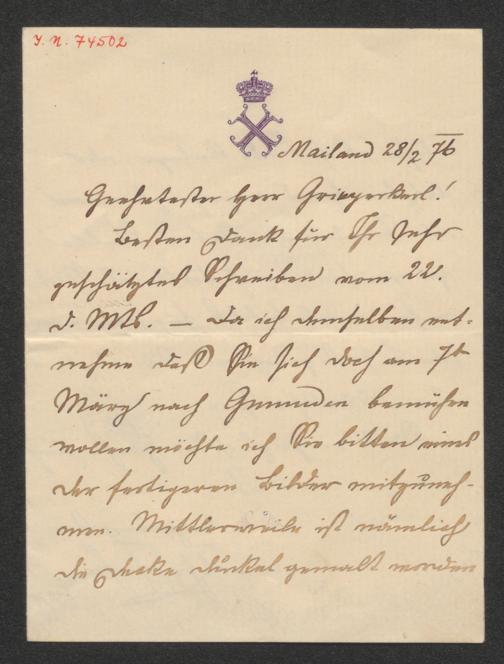 J. N. 74502
Mailand 28/2 76
Geehrtester Herr Griepenkerl!
Besten Dank für Ihr sehr
geschätztes Schreiben vom 22.
d. Mts. — Da ich demselben ent-
nehme daß Sie sich doch am 7t
März nach Gmunden bemühen
wollen möchte ich Sie bitten eines
der fertigeren Bilder mitzuneh-
men. Mittlerweile ist nämlich
die Decke dunkel gemalt worden